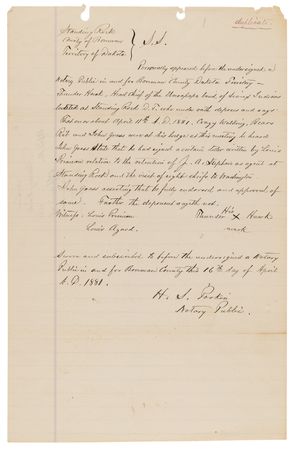 duplicate.
Standing Rock
County of Boreman
Territory of Dakota
} S.S.
Personally appeared before the undersigned a
Notary Public in and for Boreman County Dakota Territory—
Thunder Hawk, Head chief of the Uncapapa band of Sioux Indians
located at Standing Rock D.T. who under oath deposes and says
that on or about April 11th A.D. 1881, Crazy Walking, Bears
Rib and John Grass were at his lodge at this meeting he heard
John Grass state that he had signed a certain letter written by Louis
Primeau relative to the retention of J. A. Stephan as agent at
Standing Rock and the visit of eight chiefs to Washington
John Grass asserting that he fully endorsed and approved of
same. Further the deponent sayeth not.
Witness. Louis Primeau
His
Thunder X Hawk
mark
Louis Agard.
Sworn and subscribed to before the undersigned a Notary
Public in and for Boreman County this 16th day of April
A.D. 1881.
H. S. Parkin
Notary Public.